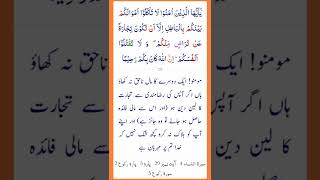 يَٰٓأَيُّهَا الَّذِينَ آمَنُوا لَا تَأْكُلُوا أَمْوَالَكُمْ
بَيْنَكُمْ بِالْبَاطِلِ إِلَّا أَنْ تَكُونَ تِجَارَةً
عَنْ تَرَاضٍ مِنْكُمْ ۚ وَ لَا تَقْتُلُوا
أَنْفُسَكُمْ ۚ إِنَّ اللَّهَ كَانَ بِكُمْ رَحِيمًا
مومنو! ایک دوسرے کا مال ناحق نہ کھاؤ
ہاں اگر آپس کی رضامندی سے تجارت
کا لین دین ہو (اور اس سے مالی فائدہ
حاصل ہو جائے تو وہ جائز ہے) اور اپنے
آپ کو ہلاک نہ کرو کچھ شک نہیں کہ
خدا تم پر مہربان ہے
سورۃ النساء 4 آیت نمبر 29 پارہ 5 پارہ رکوع 2
سورۃ رکوع 5